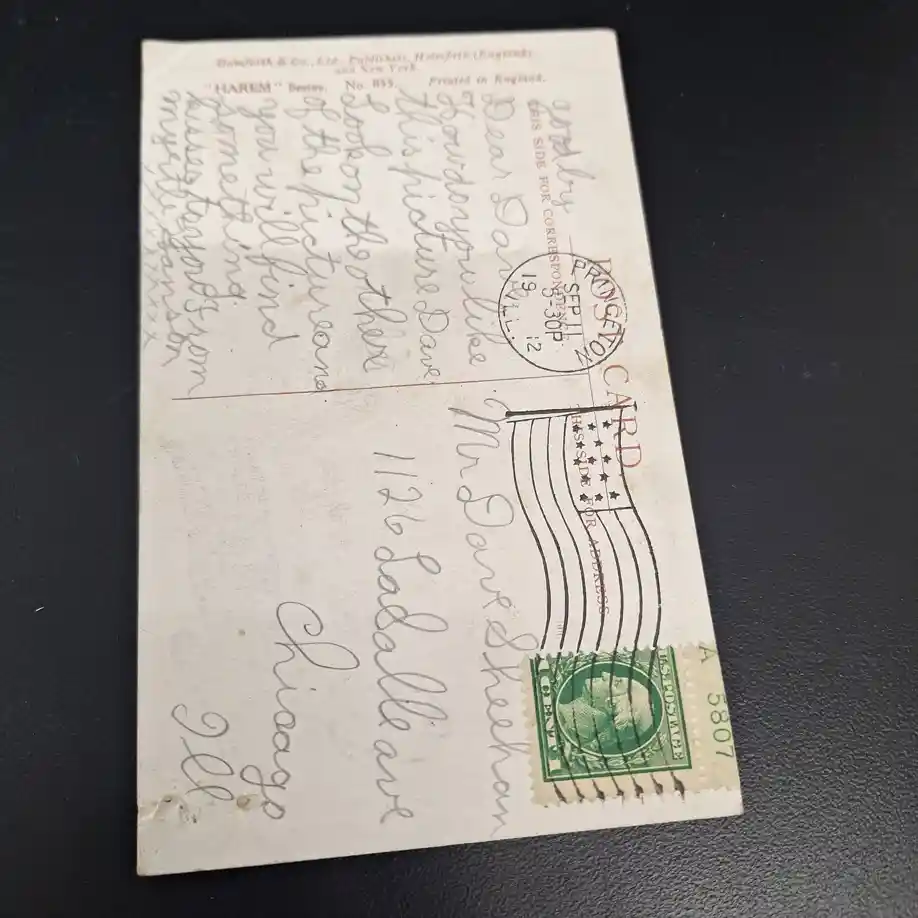 POST CARD
THIS SIDE FOR CORRESPONDENCE
THIS SIDE FOR ADDRESS
Dear Dave
How do you like
this picture Dave
Look on the other
of the picture and
you will find
something
kisses to you from
myrtle
xxxxxx
PRINCETON
SEP 11
5-30P
19 12
ILL.
Mr Dave Sheehan
1126 LaSalle ave
Chicago
Ill
U.S. POSTAGE
1 CENT 1
A 5807
Bamforth & Co., Ltd., Publishers, Holmfirth (England)
and New York.
"HAREM" Series. No. 855. Printed in England.